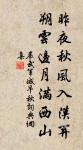 昨夜秋風入漢關
朔雲邊月滿西山
嚴武軍城早秋詞典網
集